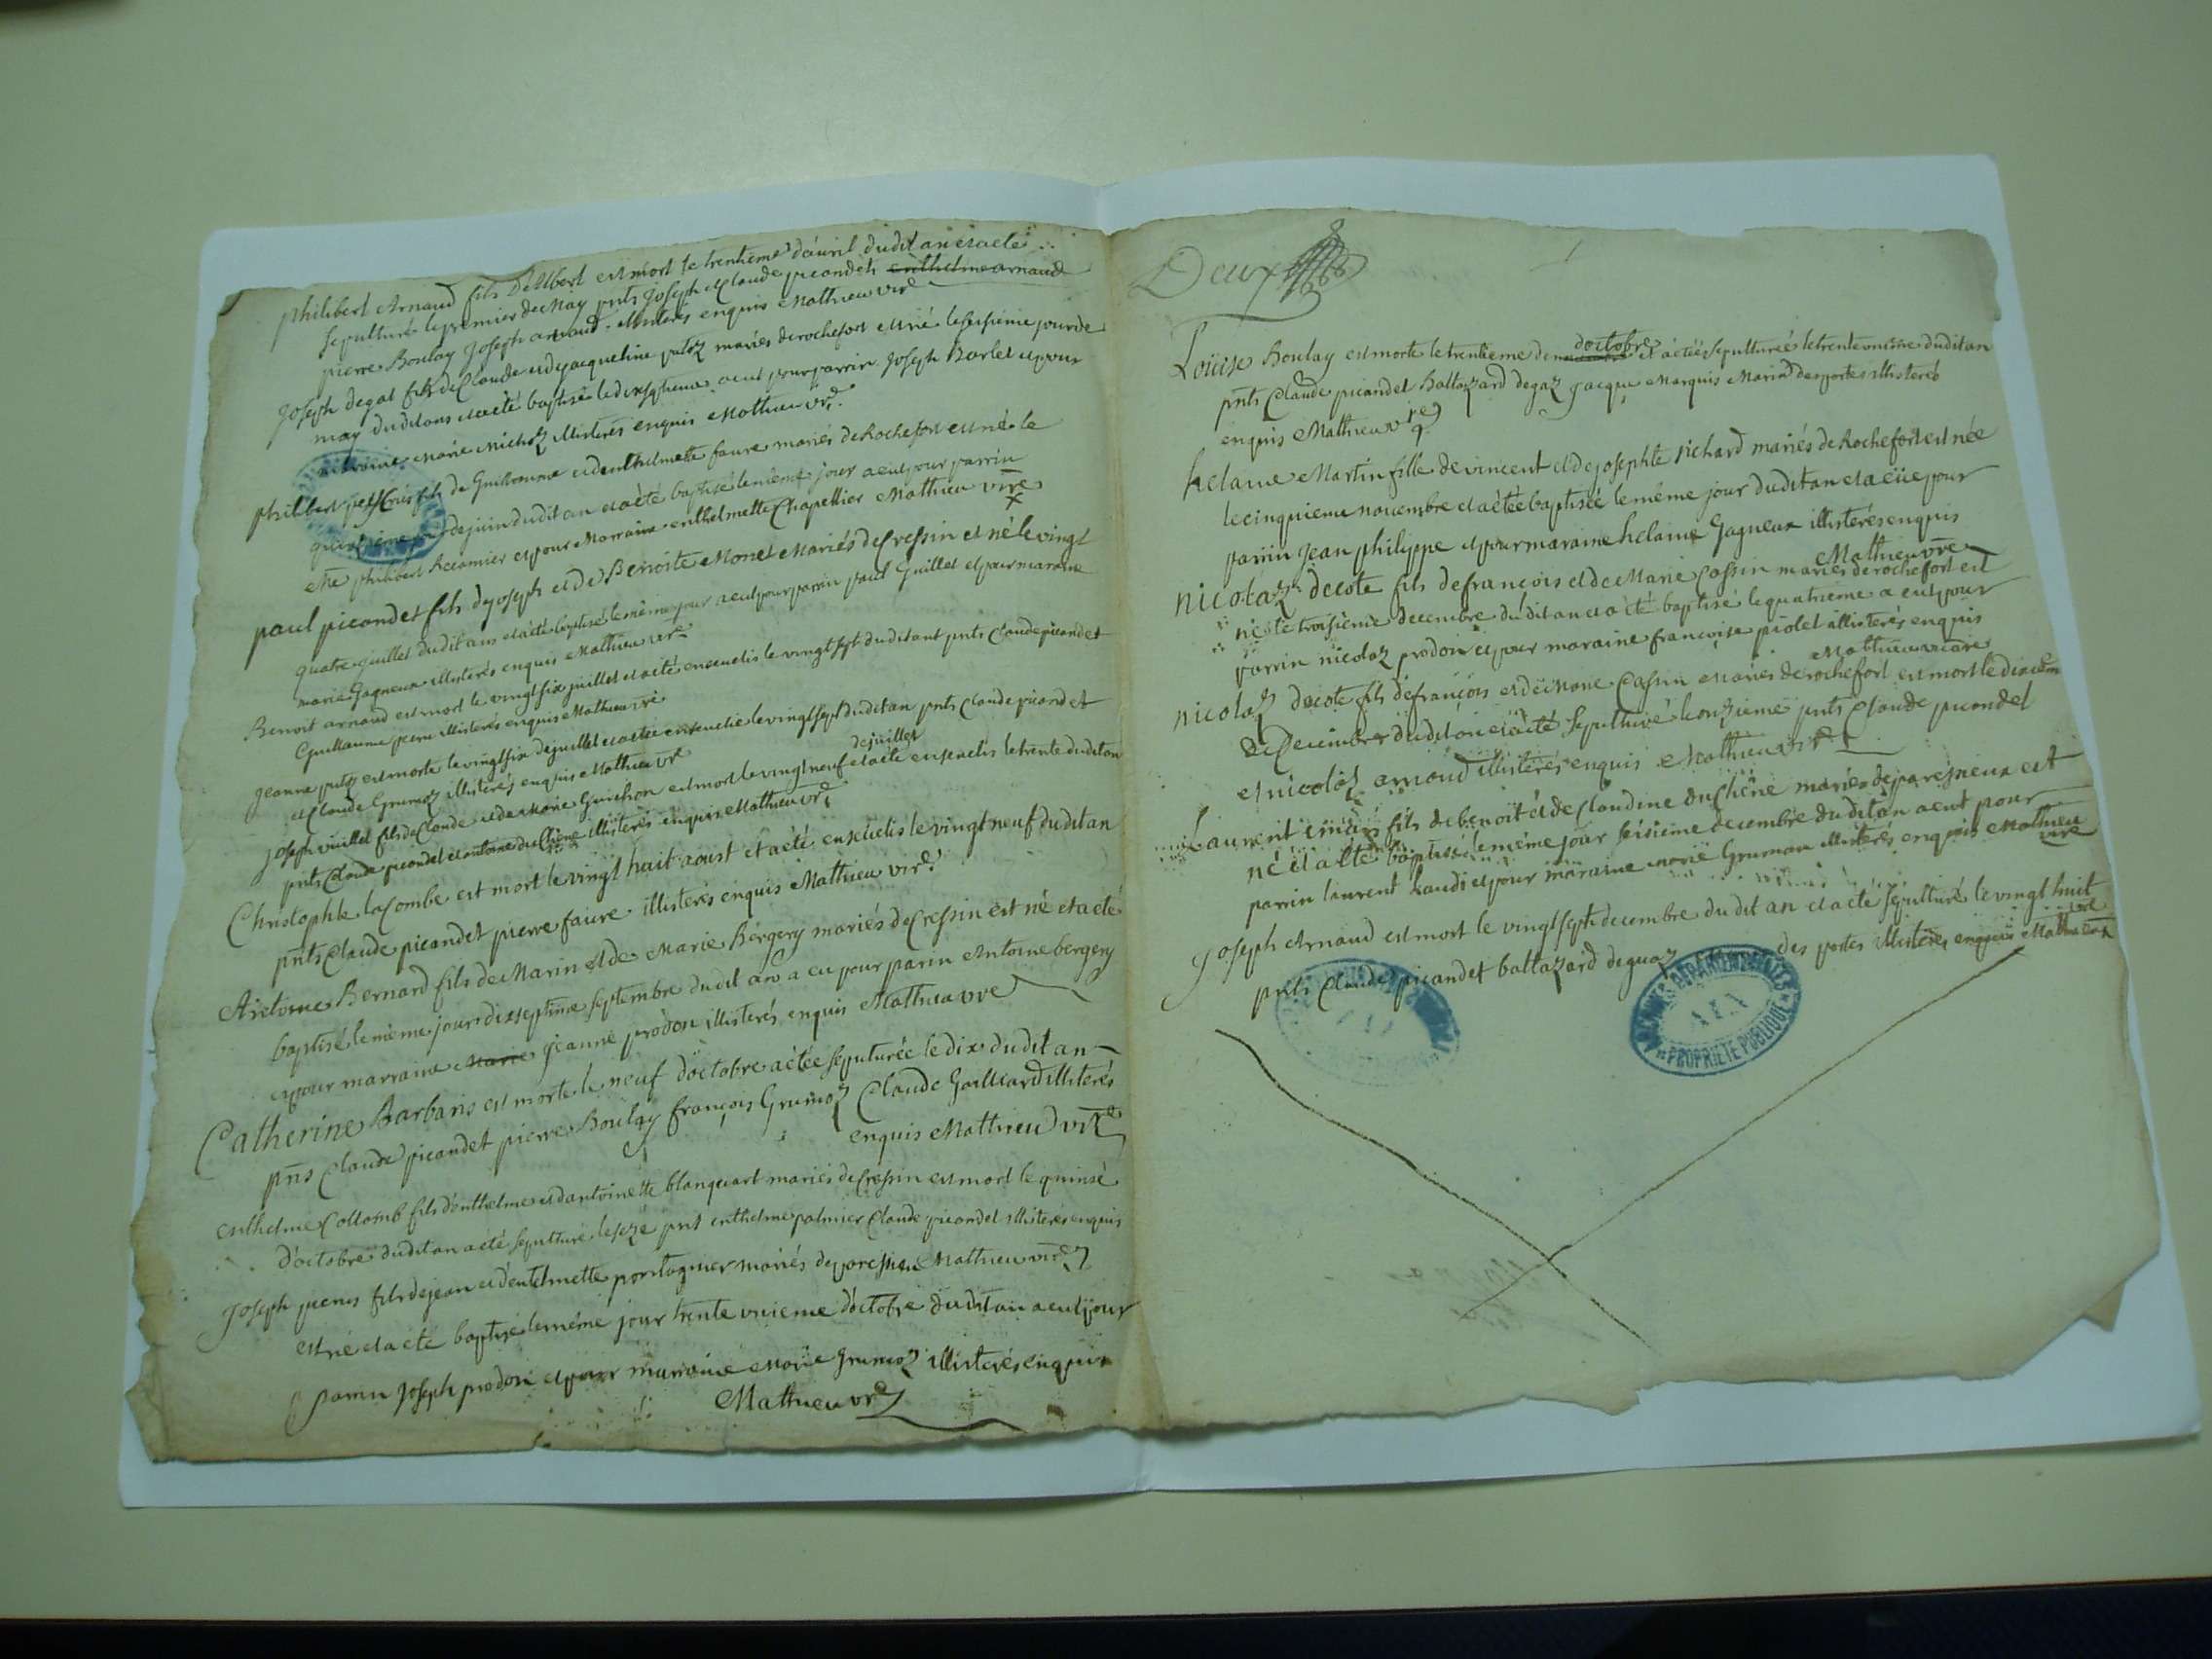 philibert Arnaud fils D'Albert est mort le trentieme d'avril dudit an et a eté
sepulturé le premier de May pnts Joseph et Claude picandet enthelme arnaud
pierre Boulay Joseph arnaud illisterés enquis Mathieu vire
Joseph degat fils de Claude et de jacqueline putoz mariés de rochefort est né le seisieme jour de
may dudit ans et a eté baptisé le dixseptieme a eut pour parrin Joseph Barlet et pour
marraine Marie Michoz illisterés enquis Mathieu vre
philibert fils de Guillaume et denthelmette favre mariés de Rochefort est né le
quinsieme de juin dudit an et a eté baptisé le même jour a eut pour parrin
Me philibert Recamier et pour Marraine enthelmette Chapellier Mathieu vire
paul picandet fils de joseph et de Benoite Monet Mariés de Cressin et né le vingt
quatre juillet dudit ans et a eté baptisé le même jour a eut pour parrin paul Guillet et pour maraine
marie Gagneux illisterés enquis Mathieu vire
Benoit arnaud est mort le vingt six juillet et a eté ensevelis le vingt sept dudit ant pnts Claude picandet
Guillaume illisterés enquis Mathieu vre
jeanne putoz est morte le vingt six de juillet et a etée ensevelie le vingt sept dudit an pnts Claude picandet
et Claude Grumoz illisterés enquis Mathieu vr
de juillet
joseph vuillet fils de Claude et de Marie Guichon est mort le vingt neuf et a eté ensevelis le trente dudit an
pnts Claude picandet et antoine du Chene illisterés enquis Mathieu vre
Christophle la Combe est mort le vingt huit aoust et a eté ensevelis le vingt neuf dudit an
pnts Claude picandet pierre faivre illisterés enquis Mathieu vire
Antoine Bernard fils de Marin et de Marie Bergery mariés de Cressin est né et a eté
baptisé le même jour dixseptime septembre dudit an a eu pour parin Antoine bergery
et pour marraine Marie jeanne prodon illisterés enquis Mathieu vre
Catherine Barbarin est morte le neuf d'octobre a etée sepulturée le dix dudit an
pns Claude picandet pierre Boulay françois Grumoz Claude Gailliard illisterés
enquis Mathieu vire
enthelme Collomb fils denthelme et dantoinette blanquart mariés de Cressin est mort le quinsé
d'octobre dudit an a eté sepulturé le seze pnt enthelme palmier Claude picandet illisterés enquis
Joseph fils de jean et dentelmette mariés de Mathieu vre
est né et a eté baptisé le même jour trente unieme d'octobre dudit an a eut pour
parrin Joseph prodon et pour marraine Marie Grumoz illisterés enquis
Mathieu vre
Deux
d'octobre
Loüise Boulay est morte le trentieme de et a etée sepulturée le trente unieme dudit an
pnts Claude picandet Baltazard degaz jacque Marquis Marin desportes illisterés
enquis Mathieu vre
helaine Martin fille de vincent et de josephte richard mariés de Rochefort est née
le cinquieme novembre et a etée baptisée le même jour dudit an et a eüe pour
parrin jean philippe et pour maraine helaine Gagneux illisterés enquis
Mathieu vre
nicolaz decote fils de françois et de Marie Cassin mariés de rochefort est
né le troisieme decembre dudit an et a eté baptisé le quatrieme a eut pour
parrin nicolaz prodon et pour maraine françoise piolet illisterés enquis
Mathieu vicaire
nicolaz decote fils de françois et de Marie Cassin mariés de rochefort est mort le dixieme
de Decembre dudit an et a eté sepulturé le onzieme pnts Claude picandet
et nicolas arnaud illisterés enquis Mathieu vire
Laurent fils de benoit et de Claudine du Chêne mariés de paresieux est
né et a eté baptisé le même jour seisieme decembre dudit an a eut pour
parrin laurent et pour maraine Marie Grumoz illisterés enquis Mathieu
vire
Joseph Arnaud est mort le vingt sept decembre dudit an et a eté sepulturé le vingt huit
pnts Claude picandet baltazard deguaz des portes illisterés enquis Mathieu vre
ARCHIVES DEPARTEMENTALES
AIN
PROPRIETE PUBLIQUE